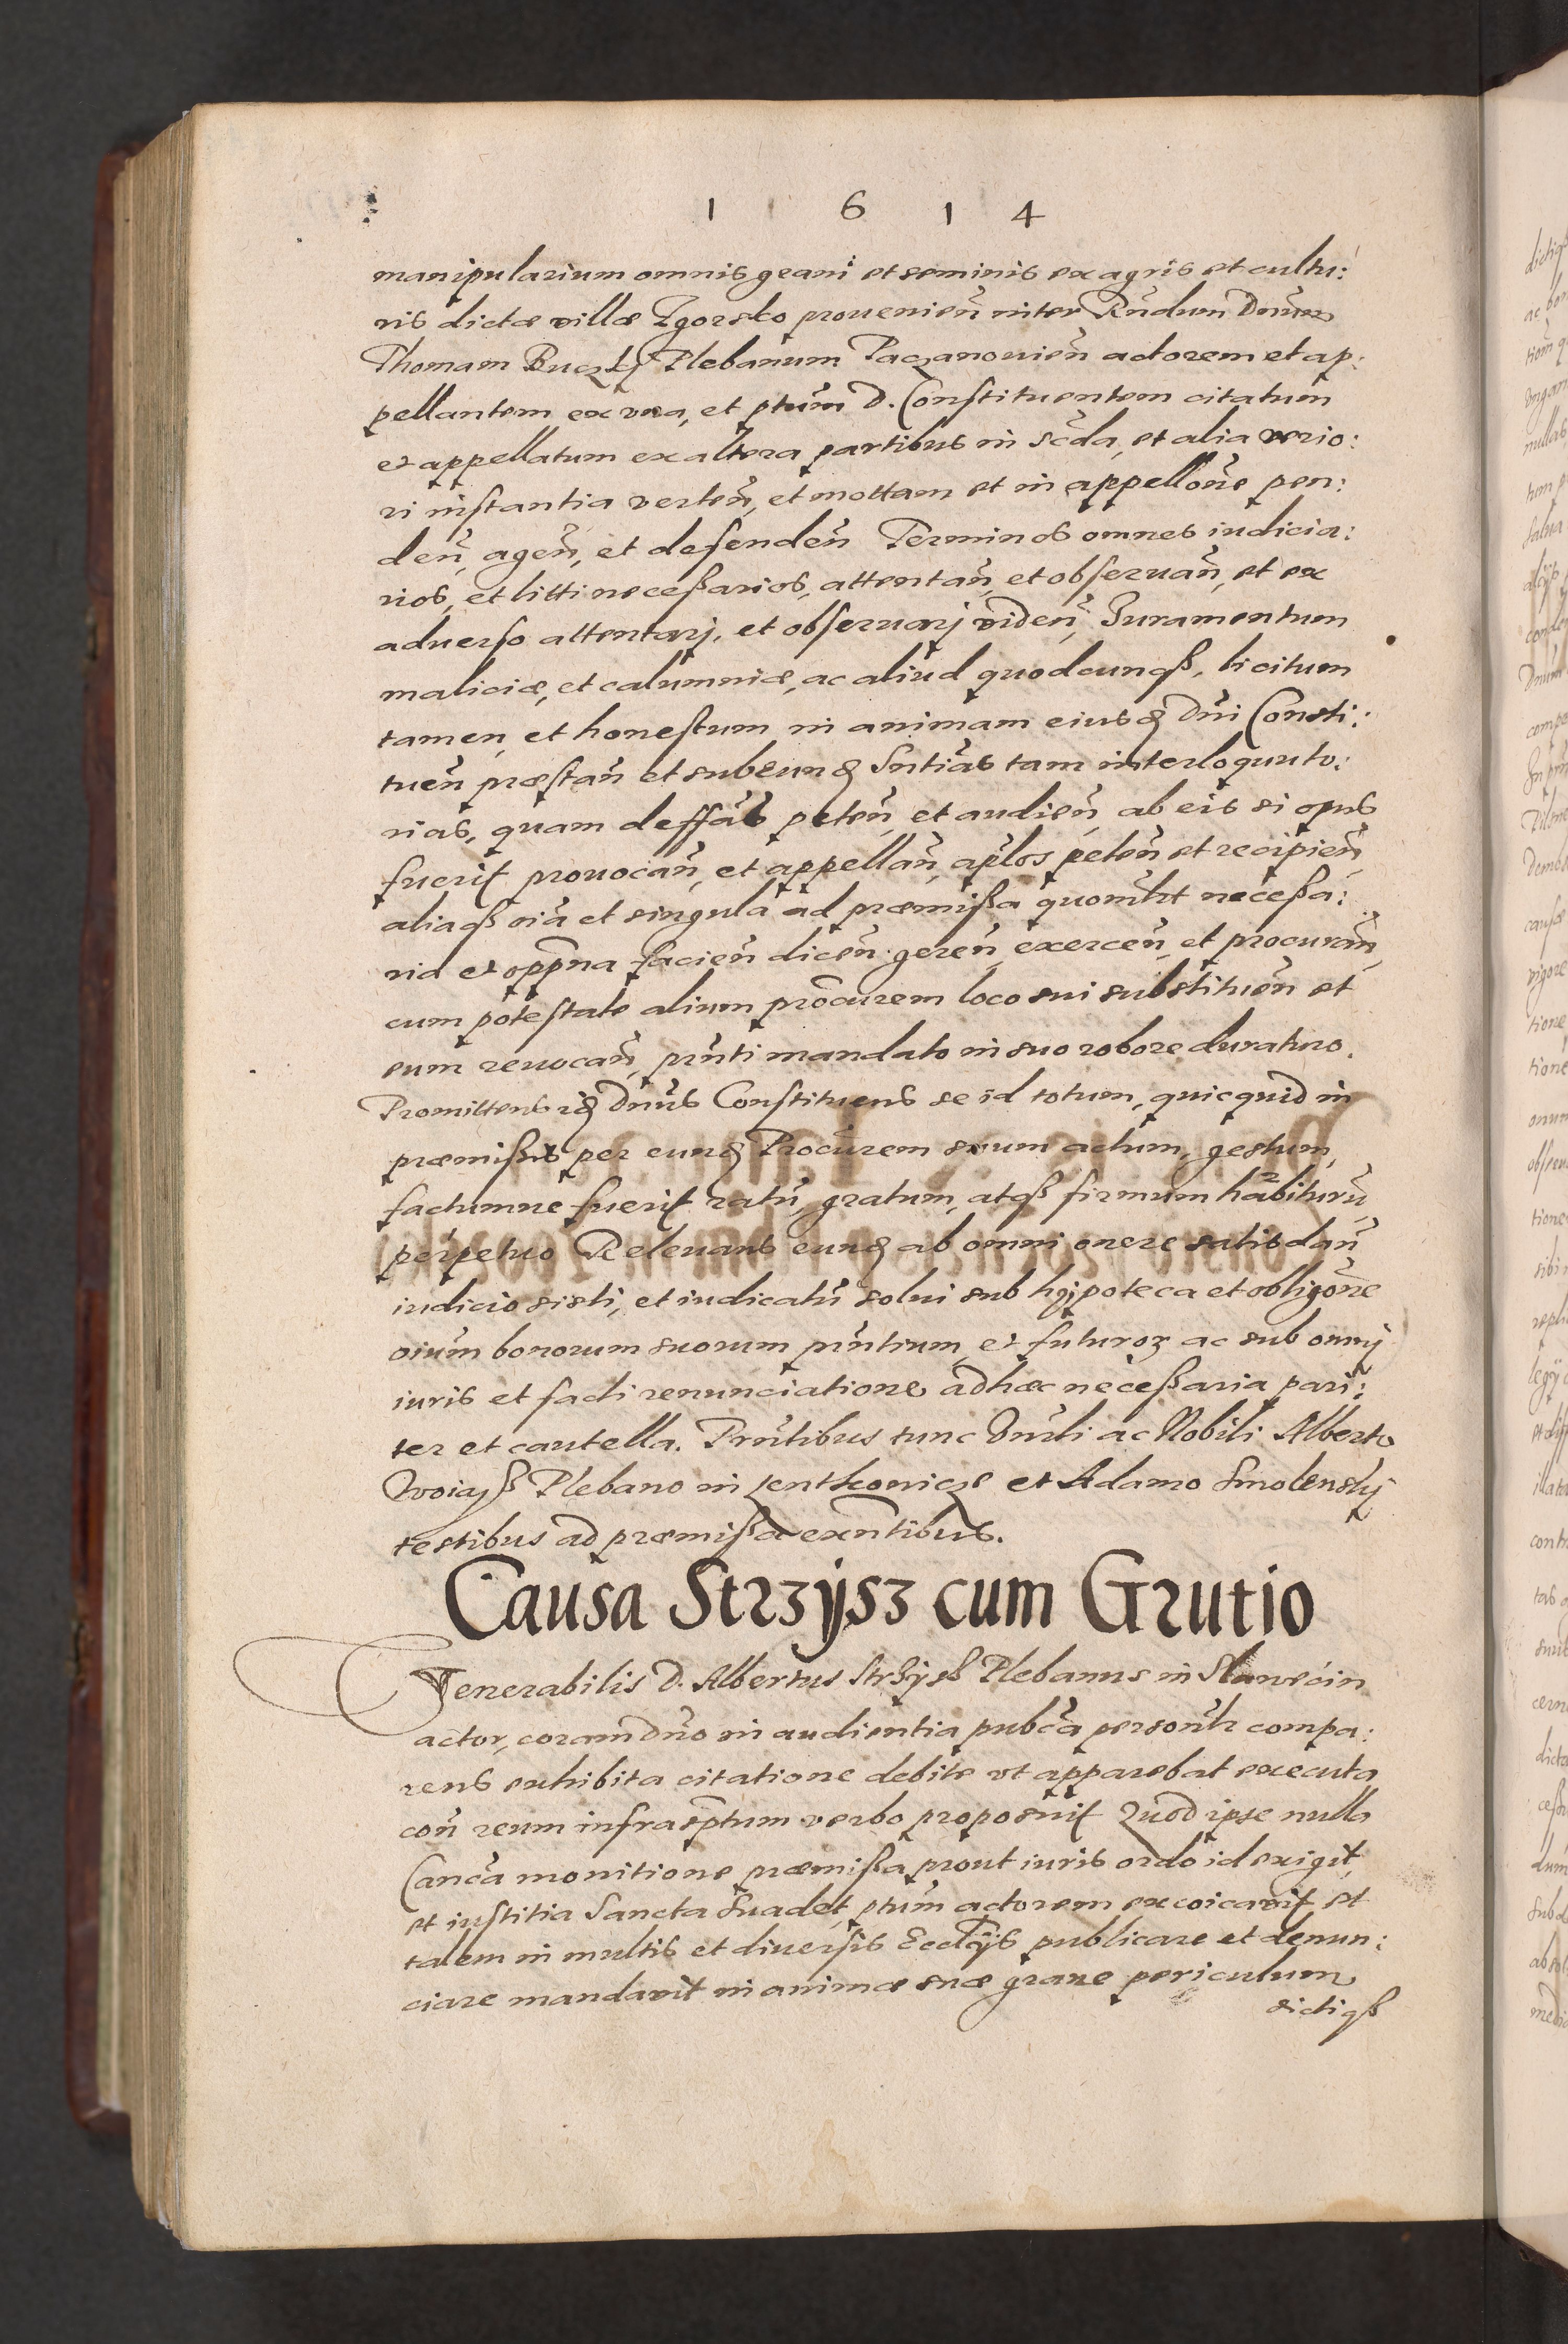 1 6 1 4
manipularium omnis grani et seminis ex agris et cultu:
ris dictæ villæ Zgorsko prouenień inter Rńdum Dńum
Thomam Buczky Plebanum Paczanouień actorem et ap:
pellantem ex vna, et ptum D. Constituentem citatum
et appellatum ex altera partibus in scda, et alia verio:
ri instantia verteń, et mottam et in appellone pen:
deń, ageń, et defendeń Terminos omnes iudicia:
rios, et litti neceßarios, attentań, et obseruań, et ex
aduerso attentarj, et obseruarj videń, Iuramentum
maliciæ, et calumniæ, ac aliud quodcunqß, licitum
tamen, et honestum in animam eiusd Dńi Consti:
tueń præstań et subeund Sntias tam interloquuto:
rias, quam deffas peteń, et audień, ab eis si opus
fuerit prouocań, et appellań, aplos peteń et recipień,
aliaqß oia et singula ad præmißa quomlt neceßa:
ria et oppna facień diceń gereń, exerceń, et procurań,
cum potestate alium procurem loco sui substitueń et
eum reuocań, pńti mandato in suo robore duraturo.
Promittens id Dńus Constituens se id totum, quicquid in
præmißis per eund Procurem suum actum, gestum,
factumue fuerit ratu, gratum, atqß firmum habituru
perpetuo Releuans eund ab omni onere satisdań
iudicio sisti, et iudicatu solui sub hypoteca et obligone
oium bonorum suorum pńtium, et futuroꝝ ac sub omnj
iuris et facti renunciatione adhæc neceßaria pari:
ter et cautella. Pńtibus tunc Vńbli ac Nobili Alberto
Woiayß Plebano in Zentkonicze et Adamo Smolenskj
testibus ad præmißa exńtibus.
Causa Strzÿsz cum Grutio
Venerabilis D. Albertus Strzÿsß Plebanus in Slawécin
actor, coram Dńo in audientia pubca personlr compa:
rens exhibita citatione debite vt apparebat executa
coń reum infrasptum verbo proposuit Quod ipse nulla
Canca monitione præmißa prout iuris ordo id exigit,
et iustitia Sancta Suadet, ptum actorem excoicauit et
talem in multis et diuersis Ecclÿs publicare et denun:
ciare mandauit in animæ suæ graue periculum
dictiqß